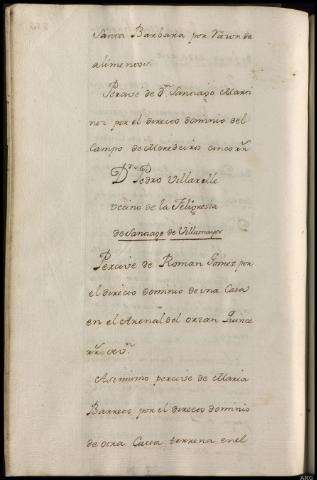 Santa Barbara por razon de
alimentos.
Percive de Dn. Santiago Marti
nez por el directo dominio del
Campo de Moredeiro cinco rrn
Dn. Pedro Villarelle
vecino de la Feligresia
de Santiago de Villamayor
Percive de Roman Gomez por
el directo dominio de una Casa
en el Arenal del orzan Quince
rrs. de vn.
Asimismo percive de Maria
Barros por el directo dominio
de otra Casa terrena en el